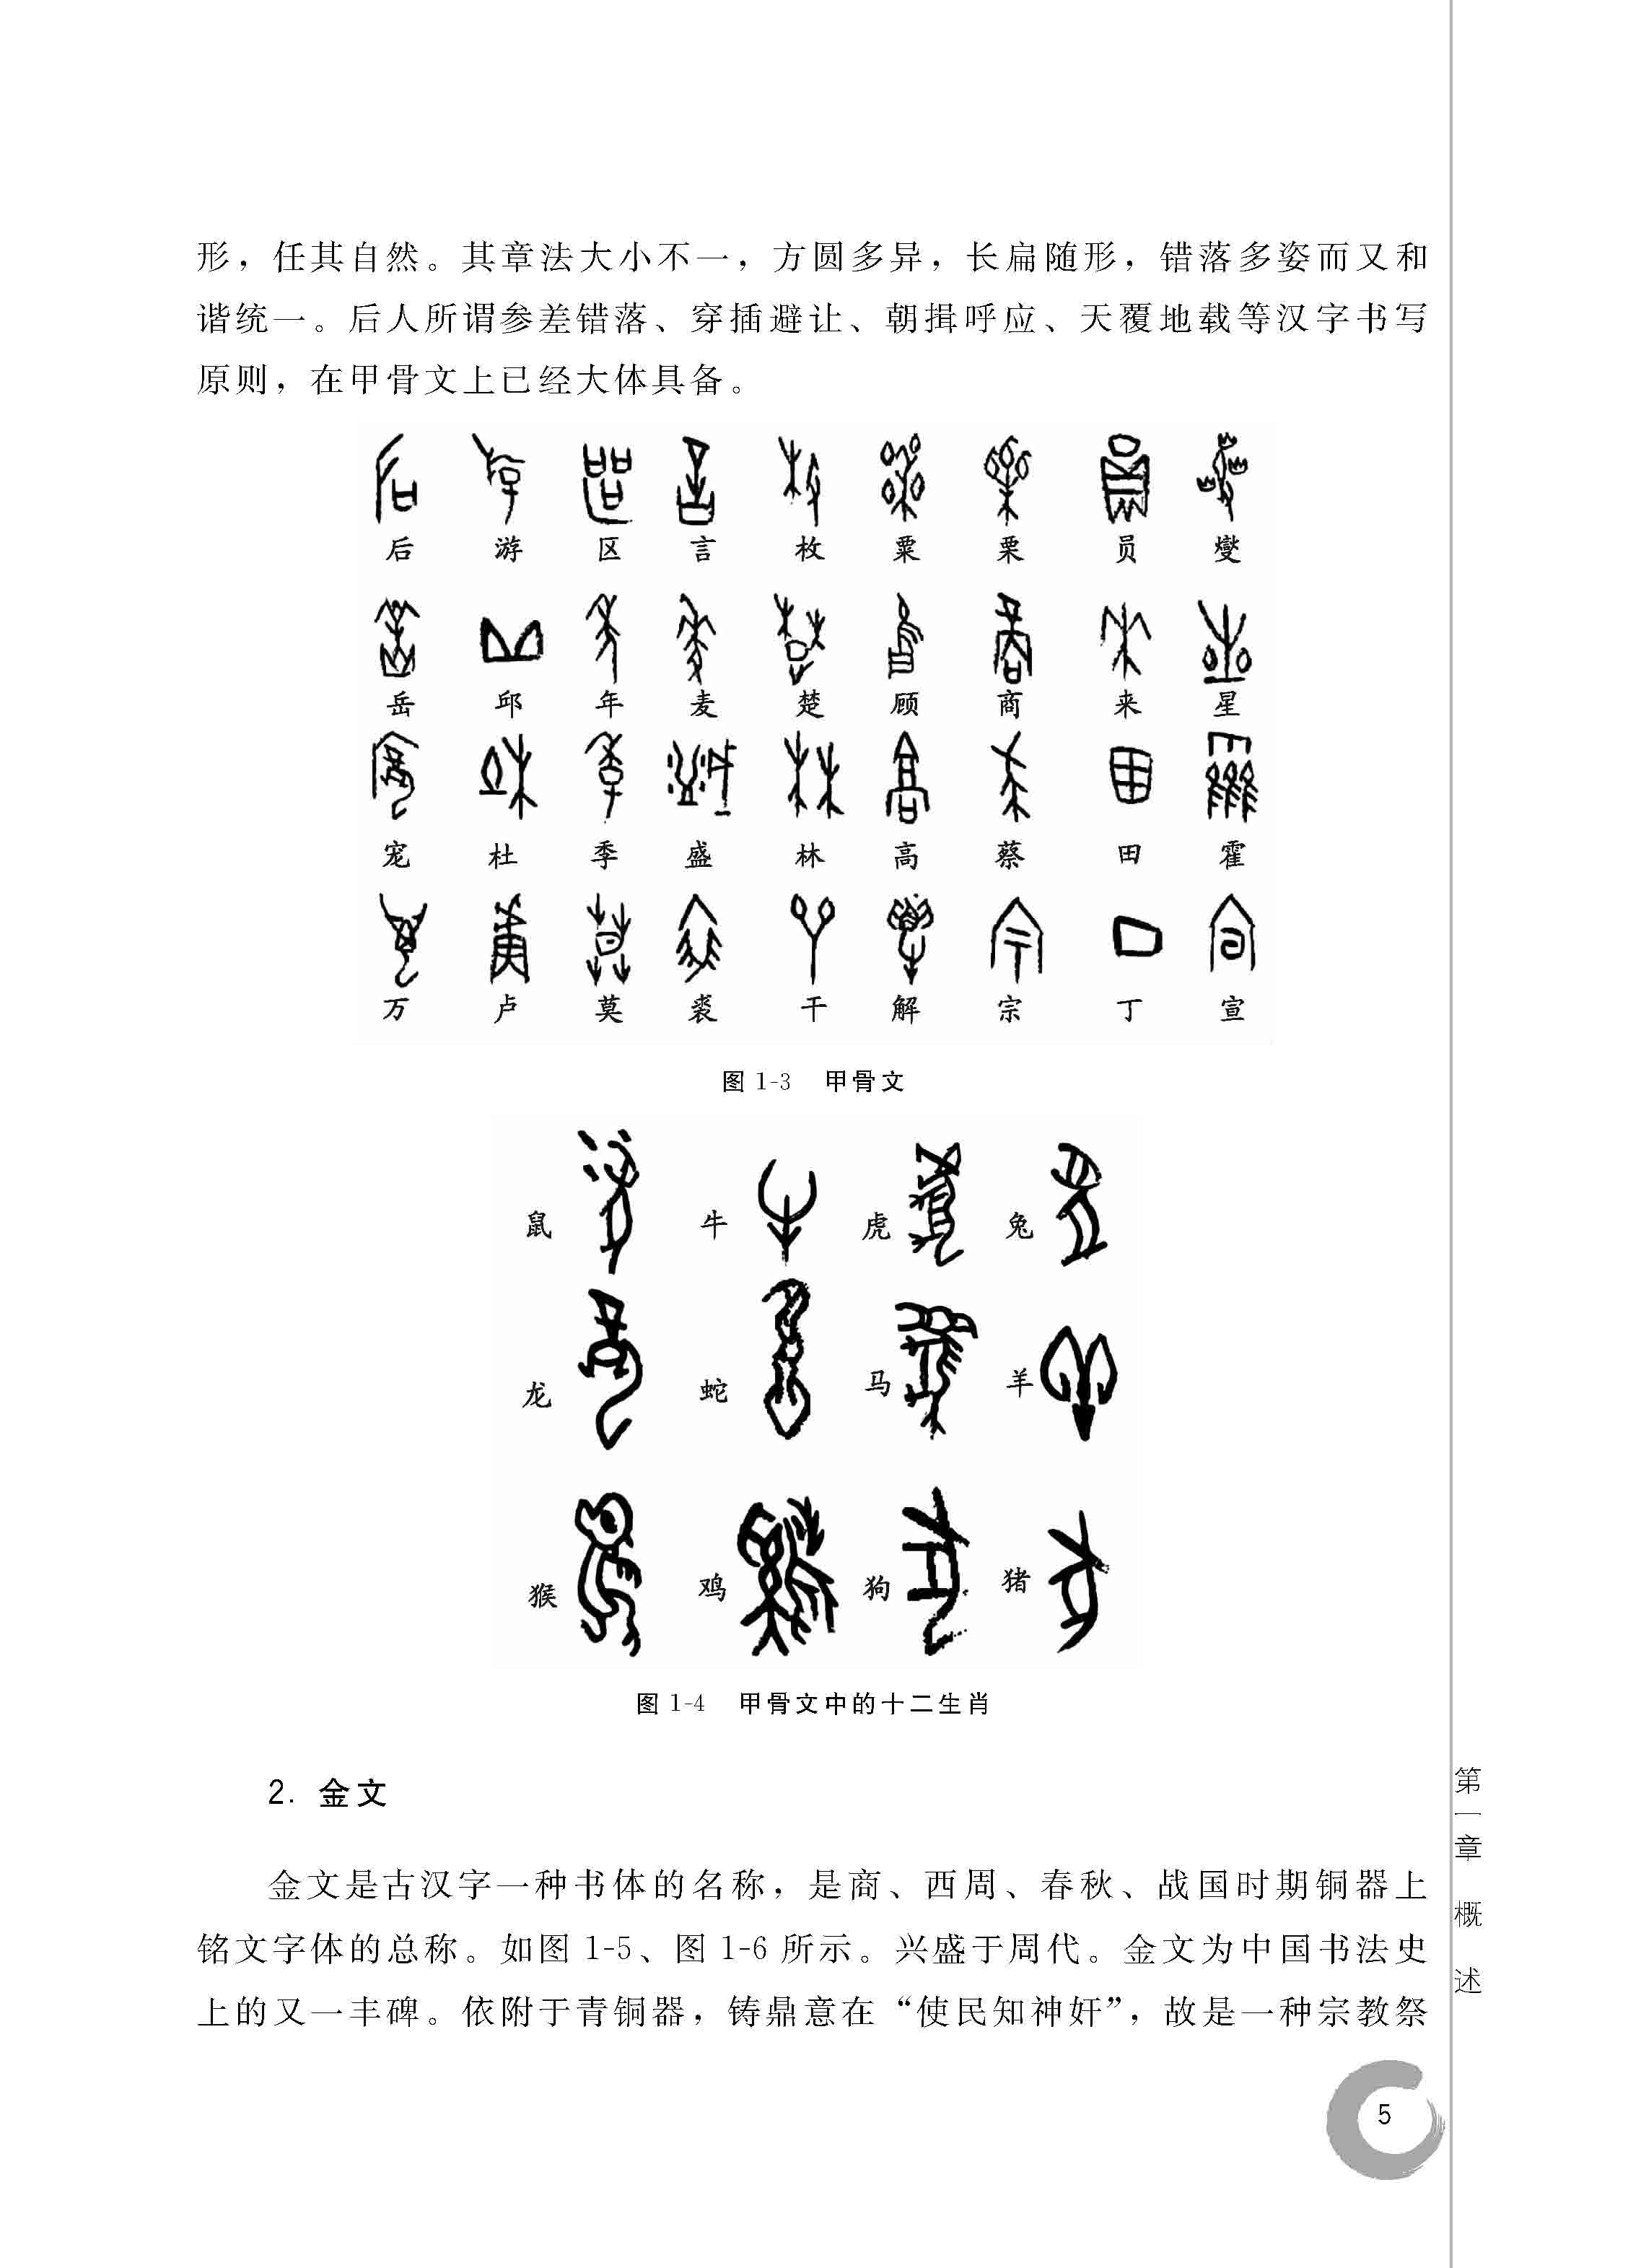 形，任其自然。其章法大小不一，方圆多异，长扁随形，错落多姿而又和
谐统一。后人所谓参差错落、穿插避让、朝揖呼应、天覆地载等汉字书写
原则，在甲骨文上已经大体具备。
后 游 区 言 枚 粟 栗 员 燮
岳 邱 年 麦 楚 顾 商 来 星
宠 杜 季 盛 林 高 蔡 田 霍
万 卢 莫 裘 干 解 宗 丁 宣
图 1-3 甲骨文
鼠 牛 虎 兔
龙 蛇 马 羊
猴 鸡 狗 猪
图 1-4 甲骨文中的十二生肖
2. 金文
金文是古汉字一种书体的名称，是商、西周、春秋、战国时期铜器上
铭文字体的总称。如图 1-5、图 1-6 所示。兴盛于周代。金文为中国书法史
上的又一丰碑。依附于青铜器，铸鼎意在“使民知神奸”，故是一种宗教祭
第一章 概述
5